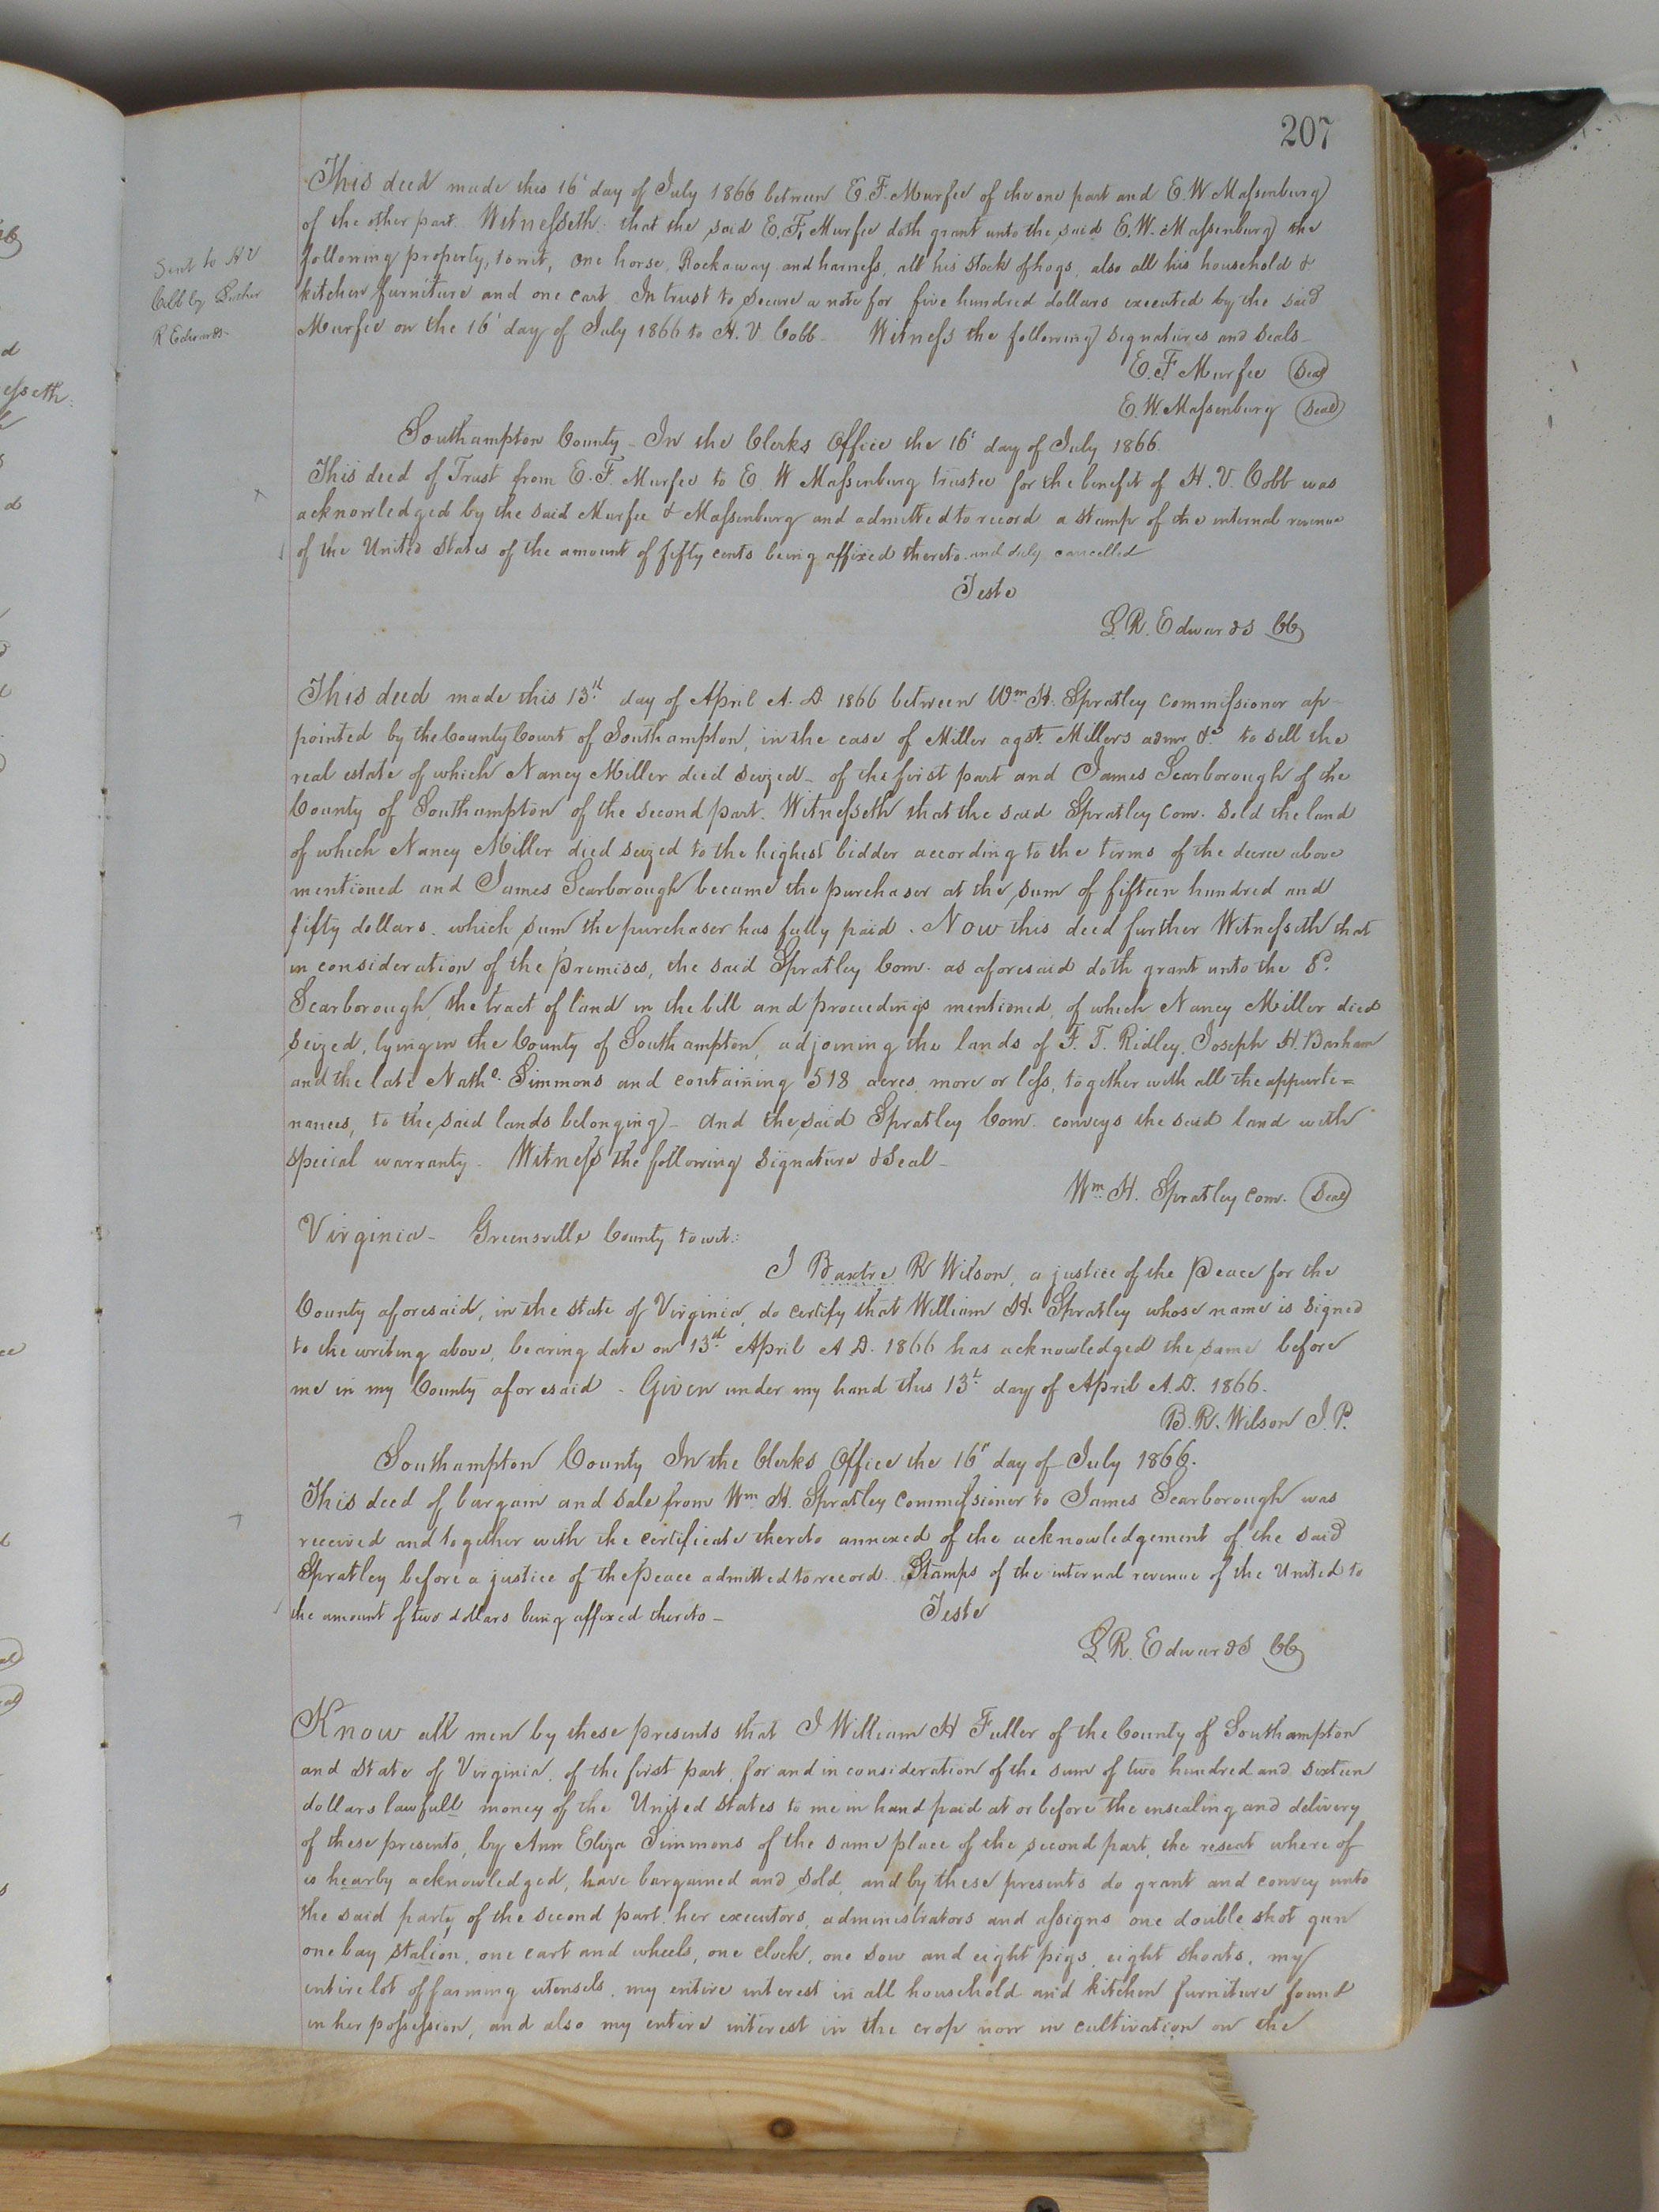 207
This deed made this 16' day of July 1866 between E. F. Murfee of the one part and E. W Massenburg
of the other part. Witnesseth: that the said E. F. Murfee doth grant unto the said E. W. Massenburg the
following property, to wit, one horse, Rockaway and harness, all his stock of hogs, also all his household &
kitchen furniture and one cart In trust to secure a note for five hundred dollars executed by the said
Murfee on the 16' day of July 1866 to H. V. Cobb - Witness the following signatures and seals -
Sent to H V
Cobb by
R Edwards -
E. F Murfee Seal
E. W. Massenburg Seal
Southampton County - In the Clerks Office the 16' day of July 1866.
This deed of Trust from E. F. Murfee to E. W Massenburg trustee for the benefit of H. V. Cobb was
acknowledged by the said Murfee & Massenburg and admitted to record a stamp of the internal revenue
of the United States of the amount of fifty cents being affixed thereto and duly cancelled
Teste
L. R. Edwards CC
This deed made this 13th day of April A. D. 1866 between Wm H. Spratley Commissioner ap-
pointed by the County Court of Southampton, in the case of Miller agst. Millers admr &c to sell the
real estate of which Nancy Miller died seized - of the first part and James Scarborough of the
County of Southampton of the second part. Witnesseth that the said Spratley Com. sold the land
of which Nancy Miller died seized to the highest bidder according to the terms of the decree above
mentioned and James Scarborough became the purchaser at the sum of fifteen hundred and
fifty dollars. which sum the purchaser has fully paid. Now this deed further Witnesseth that
in consideration of the Premises, the said Spratley Com. as aforesaid doth grant unto the Sd.
Scarborough, the tract of land in the bill and proceedings mentioned, of which Nancy Miller died
seized, lying in the County of Southampton, adjoining the lands of F. T. Ridley, Joseph H. Barham
and the late Nathl. Simmons and containing 518 acres, more or less, together with all the appurte=
nances, to the said lands belonging - And the said Spratley Com. conveys the said land with
special warranty. Witness the following signature & Seal -
Wm. H. Spratley Com. Seal
Virginia - Greensville County to wit:
I Baxtre R Wilson, a justice of the Peace for the
County aforesaid, in the state of Virginia, do certify that William H. Spratley whose name is signed
to the writing above, bearing date on 13th April A D. 1866 has acknowledged the same before
me in my County aforesaid - Given under my hand this 13th day of April A. D. 1866.
B. R. Wilson J. P.
Southampton County In the Clerks Office the 16' day of July 1866.
This deed of bargain and sale from Wm H. Spratley Commissioner to James Scarborough was
received and together with the certificate thereto annexed of the acknowledgement of the said
Spratley before a justice of the peace admitted to record. Stamps of the internal revenue of the United to
the amount of two dollars being affixed thereto - Teste
L. R. Edwards CC
Know all men by these presents that I William H Fuller of the County of Southampton
and State of Virginia, of the first part, for and in consideration of the sum of two hundred and sixteen
dollars lawfull money of the United States to me in hand paid at or before the ensealing and delivery
of these presents, by Ann Eliza Simmons of the same place of the second part, the reseat where of
is hearby acknowledged, have bargained and sold, and by these presents do grant and convey unto
the said party of the second part, her executors, administrators and assigns one double shot gun
one bay stalion, one cart and wheels, one clock, one sow and eight pigs, eight shoats, my
entire lot of farming utensels, my entire interest in all household and kitchen furniture found
in her possession, and also my entire interest in the crop now in cultivation on the